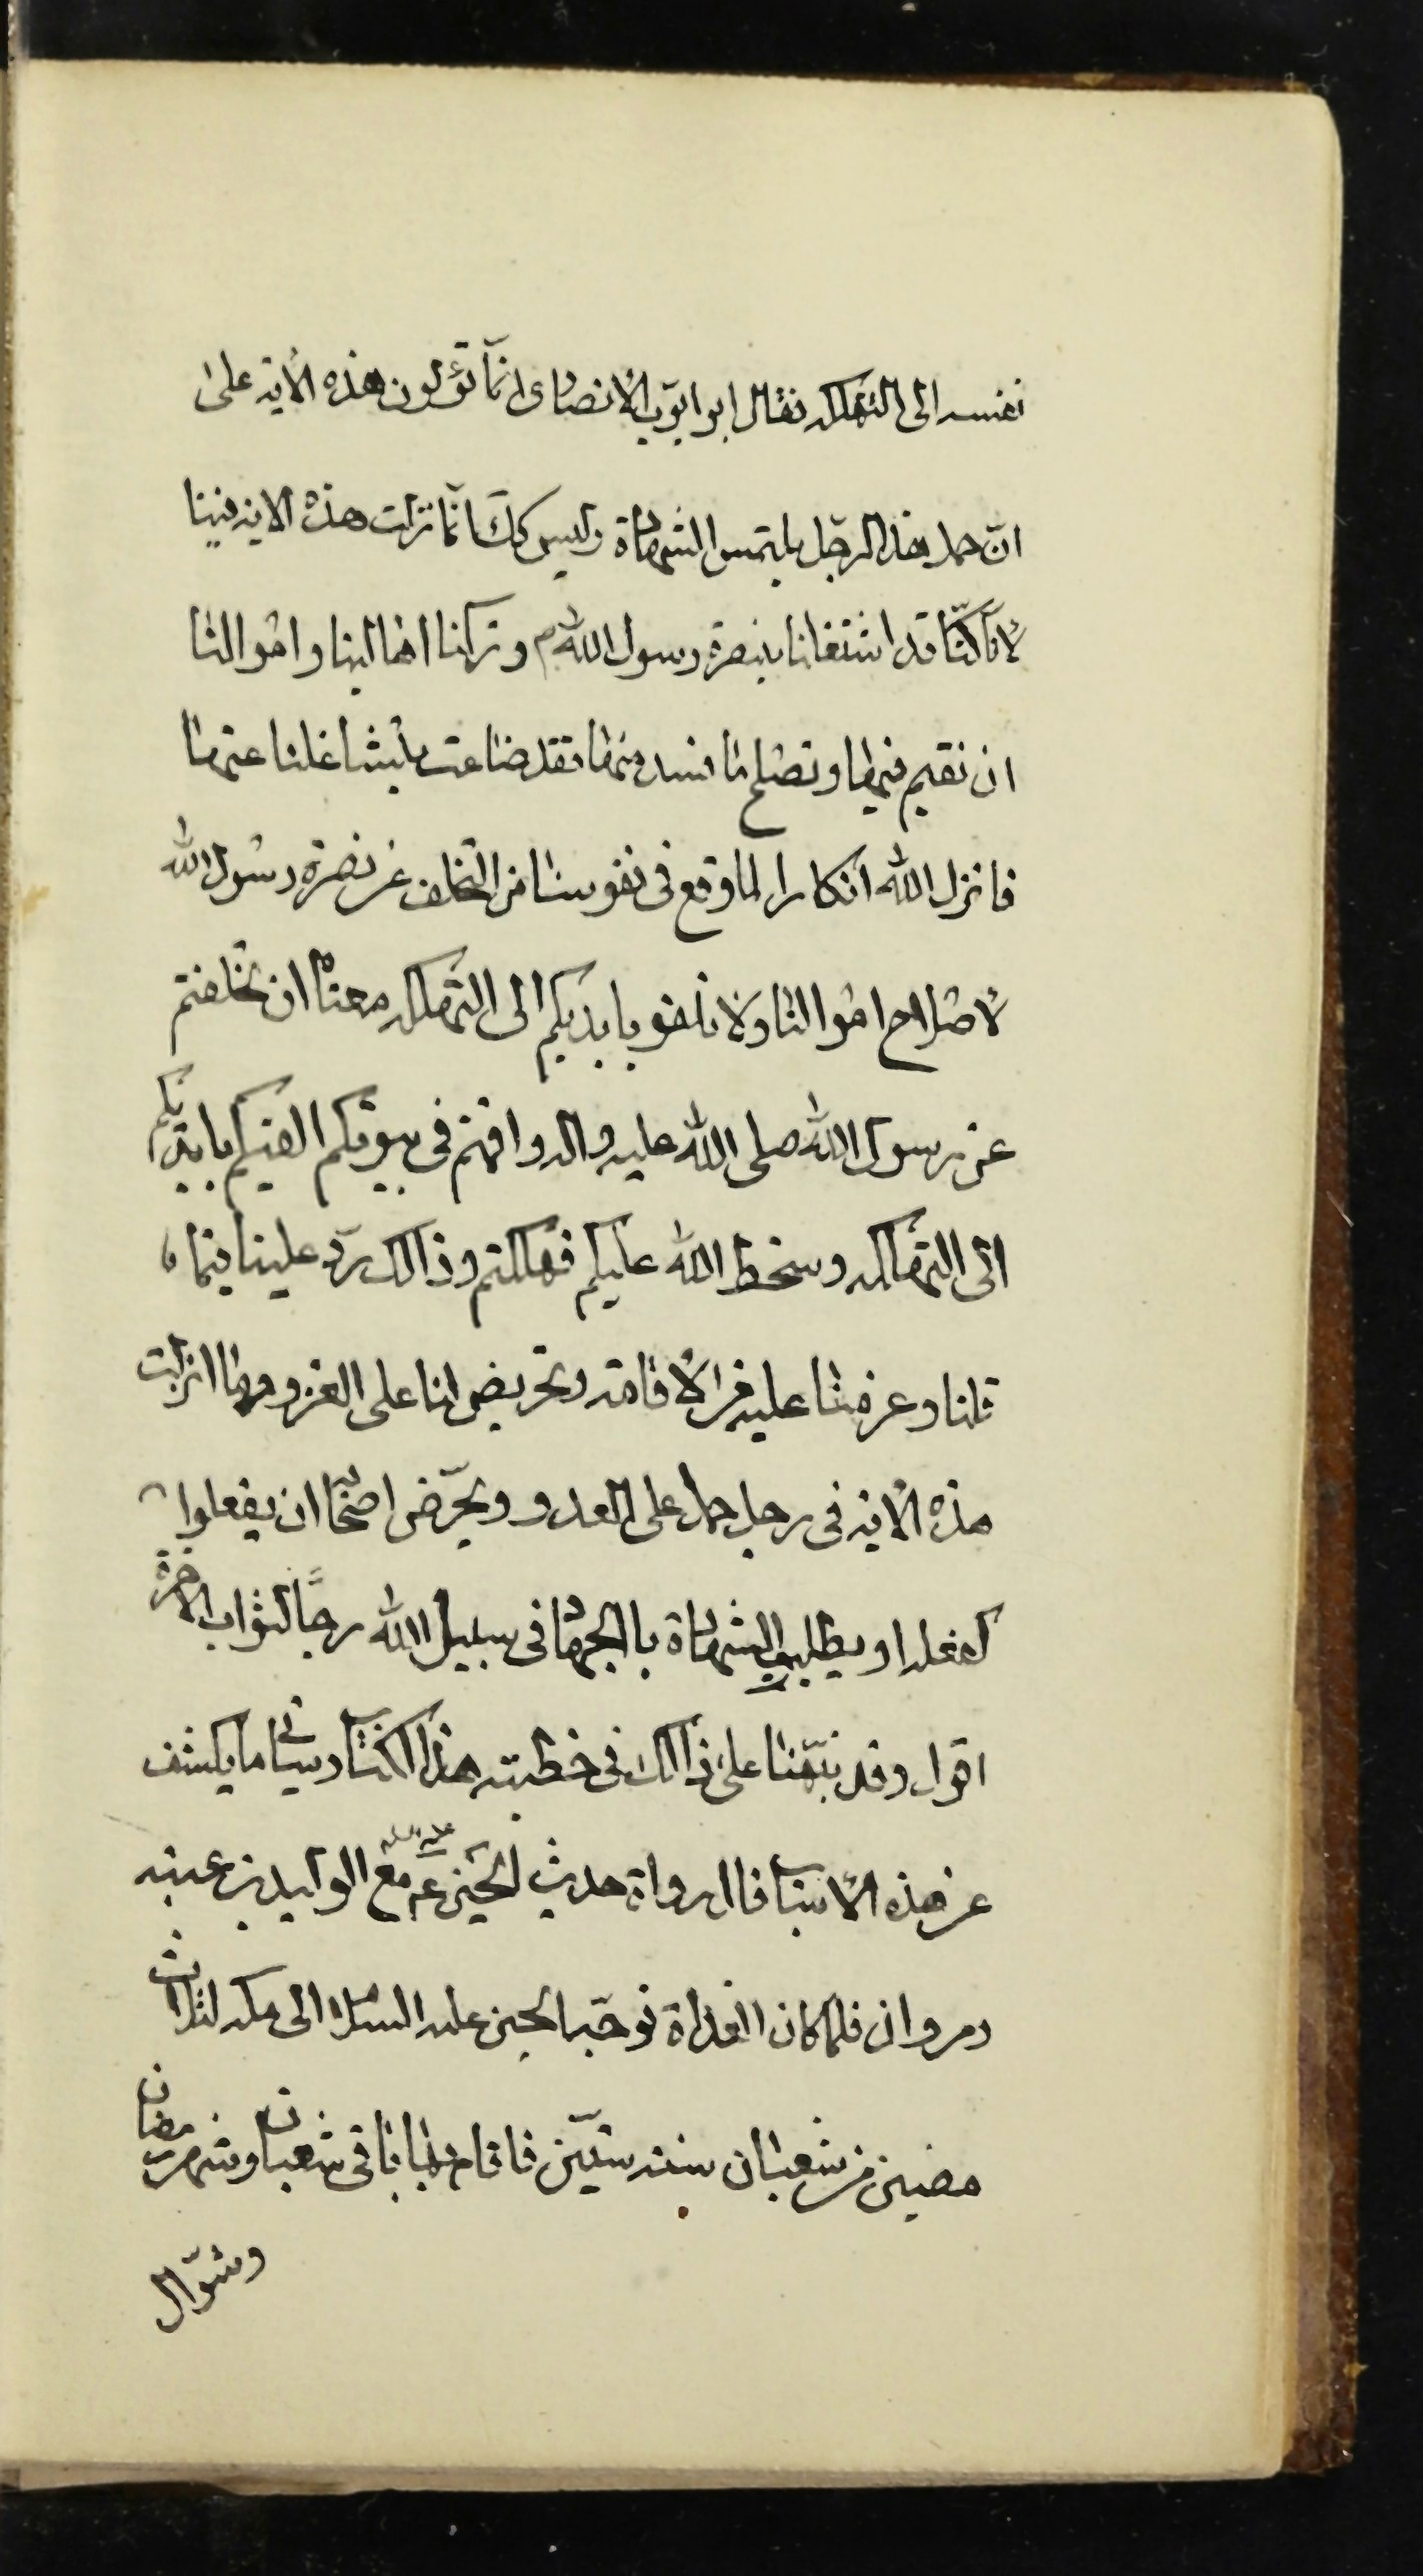 نفسه الى التهلكه فقال ابو ايوّب الانصارى انمّا تؤلون هذه الاية على
ان حمل هذا الرجل يلتمس الشهادة وليس كك انمّا نزلت هذه الاية فينا
لانّا كنّا قد اشتغلنا بنصرة رسول الله ص وتركنا اهالينا واموالنا
ان نقيم فيها ونصلح ما فسد منها فقد ضاعت بتشاغلنا عنها
فانزل الله انكارا لما وقع فى نفوسنا من التخلف عن نصرة رسول الله
لاصلاح اموالنا ولا تلقو بايديكم الى التهلكه معناه ان تخلفتم
عن رسول الله صلى الله عليه واله واقمتم فى بيوتكم القيتم بايديكم
الى التهلكه وسخط الله عليكم فهلكتم وذالك ردّ علينا فيما
قلنا وعزمنا عليه من الاقامة وتحريض لنا على الغزو وما انزلت
هذه الاية فى رجل حمل على العدو ويحرّض اصحابه ان يفعلوا
كفعله او يطلب الشهادة بالجهاد فى سبيل الله رجاءً لثواب الاخرة
اقول وقد نبّهنا على ذالك فى خطبته هذا الكتاب وسياتى ما يكشف
عن هذه الاسباب قال رواة حديث الحسين ع عليه السلم مع الوليد بن عتبه
ومروان فلما كان الغداة توجّه الحسين عليه السلام الى مكه لثلاث
مضين من شعبان سنة ستّين فاقام بها باقى شعبان وشهر رمضان
وشوّال